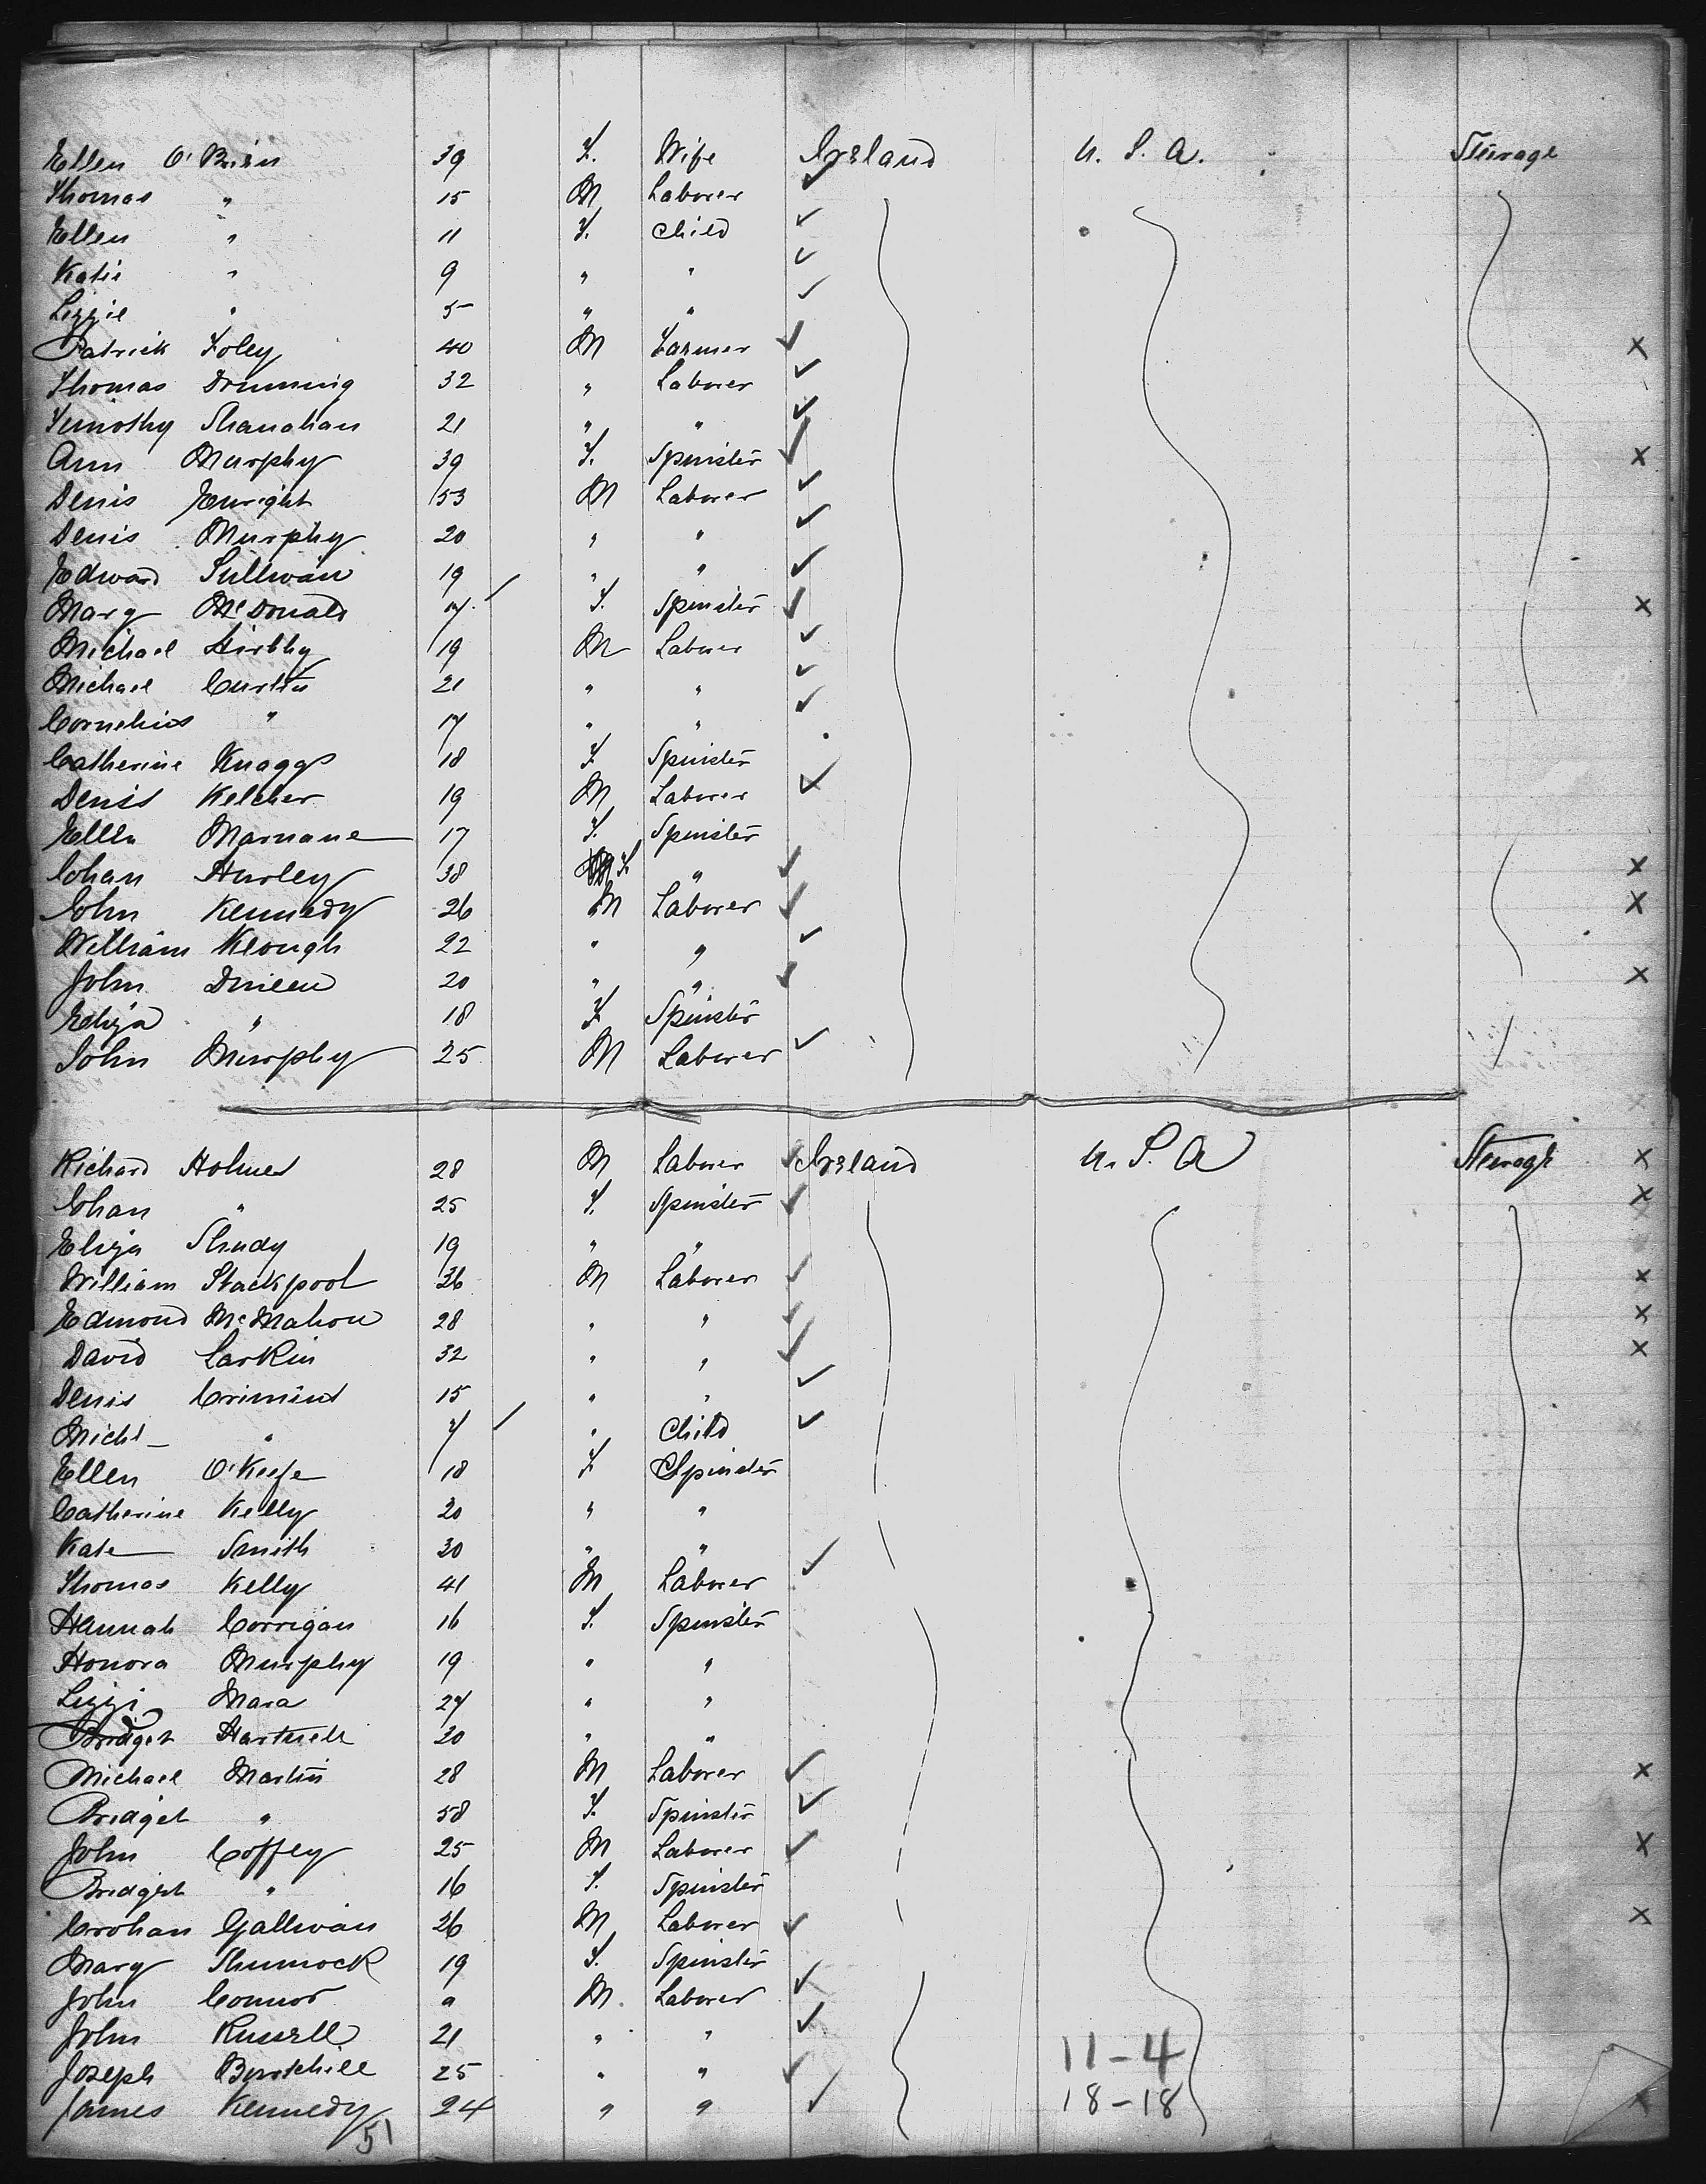 Ellen O'Brien 39 F. Wife Ireland U. S. A. Steerage
Thomas " 15 M Laborer
Ellen " 11 F. Child
Katie " 9 " "
Lizzie " 5 " "
Patrick Foley 40 M Farmer X
Thomas 32 " Laborer
Timothy Shanahan 21 " "
Ann Murphy 39 F. Spinster X
Denis Enright 53 M Laborer
Denis Murphy 20 " "
Edward Sullivan 19 " "
Mary McDonald 17 F. Spinster X
Michael Kirbby 19 M Laborer
Michael Curtin 21 " "
Cornelius " 17 " "
Catherine Knaggs 18 F Spinster
Denis Kelcher 19 M Laborer
Ellen Marnane 17 F. Spinster
Johan Hurley 38 F " X
John Kennedy 26 M Laborer X
William Keough 22 " "
John Dineen 20 " " X
Eliza " 18 F Spinster
John Murphy 25 M Laborer
Richard Holmes 28 M Laborer Ireland U. S. A Steerage X
Johan " 25 F. Spinster X
Eliza 19 " "
William Stackpool 36 M Laborer X
Edmond McMahon 28 " " X
David Larkin 32 " " X
Denis 15 " "
Michl " 7 " Child
Ellen O'Keefe 18 F Spinster
Catherine Kelly 20 " "
Kate Smith 30 " "
Thomas Kelly 41 M Laborer
Hannah Corrigan 16 F. Spinster
Honora Murphy 19 " "
Lizzi Mara 27 " "
Bridget 20 " "
Michael Martin 28 M Laborer X
Bridget " 58 F. Spinster
John Coffey 25 M Laborer X
Bridget " 16 F. Spinster
Crohan Gallivan 26 M Laborer X
Mary 19 F. Spinster
John Connor M Laborer
John Russell 21 " "
Joseph Burtchill 25 " "
James Kennedy 24 " " X
11-4
18-18
51